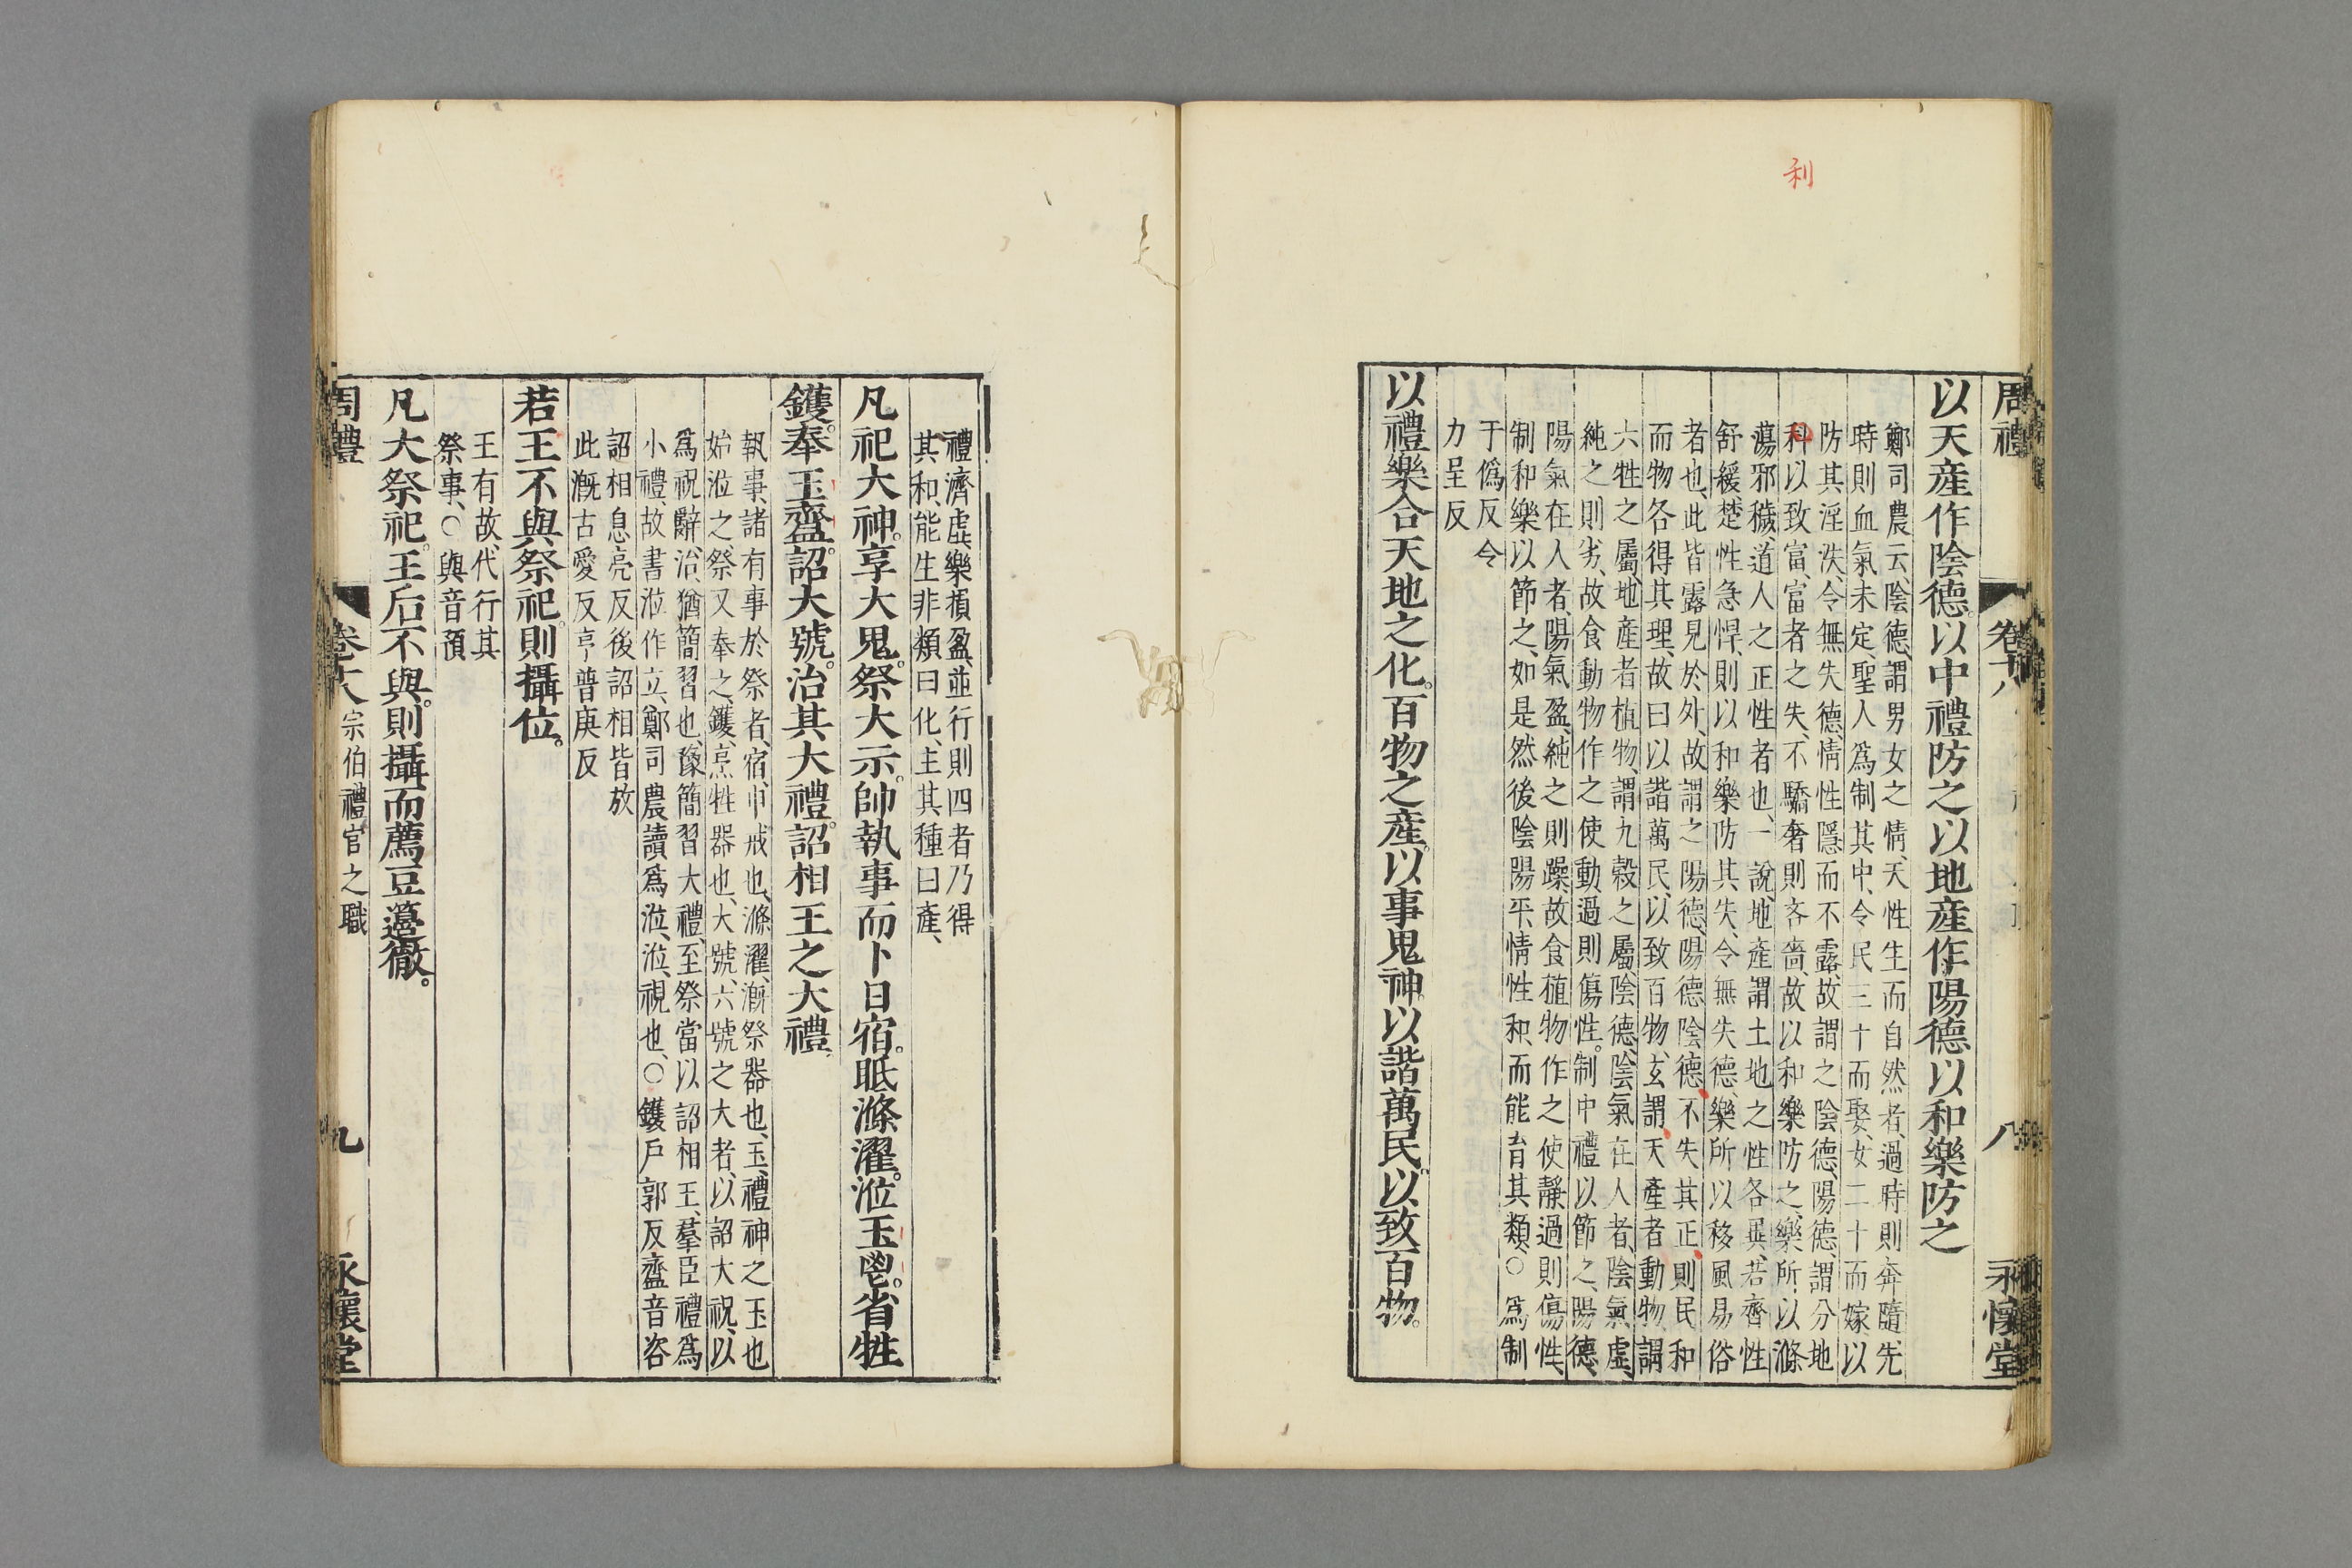 利
周禮
卷十八
八
永懷堂
以天產作陰德以中禮防之以地產作陽德以和樂防之
鄭司農云、陰德、謂男女之情、天性生而自然者、過時則奔隨、先
時則血氣未定、聖人爲制其中、令民三十而娶、女二十而嫁、以
防其淫泆、令無失德、情性隱而不露、故謂之陰德、陽德、謂分地
利以致富、富者之失、不驕奢則吝嗇、故以和樂防之、樂所以滌
蕩邪穢、道人之正性者也、一說、地產謂土地之性各異、若齊性
舒緩、楚性急悍、則以和樂防其失、令無失德、樂所以移風易俗
者也、此皆露見於外、故謂之陽德、陽德陰德不失其正、則民和
而物各得其理、故曰以諧萬民、以致百物、玄謂天產者動物、謂
六牲之屬、地產者植物、謂九穀之屬、陰德、陰氣在人者、陰氣虛、
純之則劣、故食動物作之使動、過則傷性。制中禮以節之、陽德、
陽氣在人者、陽氣盈、純之則躁、故食植物作之使靜、過則傷性、
制和樂以節之、如是然後陰陽平、情性和、而能育其類、○爲制
于僞反令
力呈反
以禮樂合天地之化。百物之產。以事鬼神。以諧萬民。以致百物。
禮濟虛、樂損盈、並行則四者乃得
其和、能生非類曰化、主其種曰產、
凡祀大神。享大鬼。祭大示。帥執事而卜日宿。眡滌濯。涖玉鬯。省牲
鑊。奉玉齍。詔大號。治其大禮。詔相王之大禮
執事、諸有事於祭者、宿、申戒也、滌濯、漑祭器也、玉、禮神之玉也
始涖之、祭又奉之、鑊、烹牲器也、大號、六號之大者、以詔大祝、以
爲祝辭、治、猶簡習也、豫簡習大禮、至祭當以詔相王、羣臣禮爲
小禮、故書涖作立、鄭司農讀爲涖、涖、視也、○鑊戶郭反齍音咨
詔相息亮反後詔相皆放
此漑古愛反亨普庚反
若王不與祭祀。則攝位。
王有故、代行其
祭事、○與音預
凡大祭祀。王后不與。則攝而薦豆籩徹。
周禮
卷十八
宗伯禮官之職
九
永懷堂